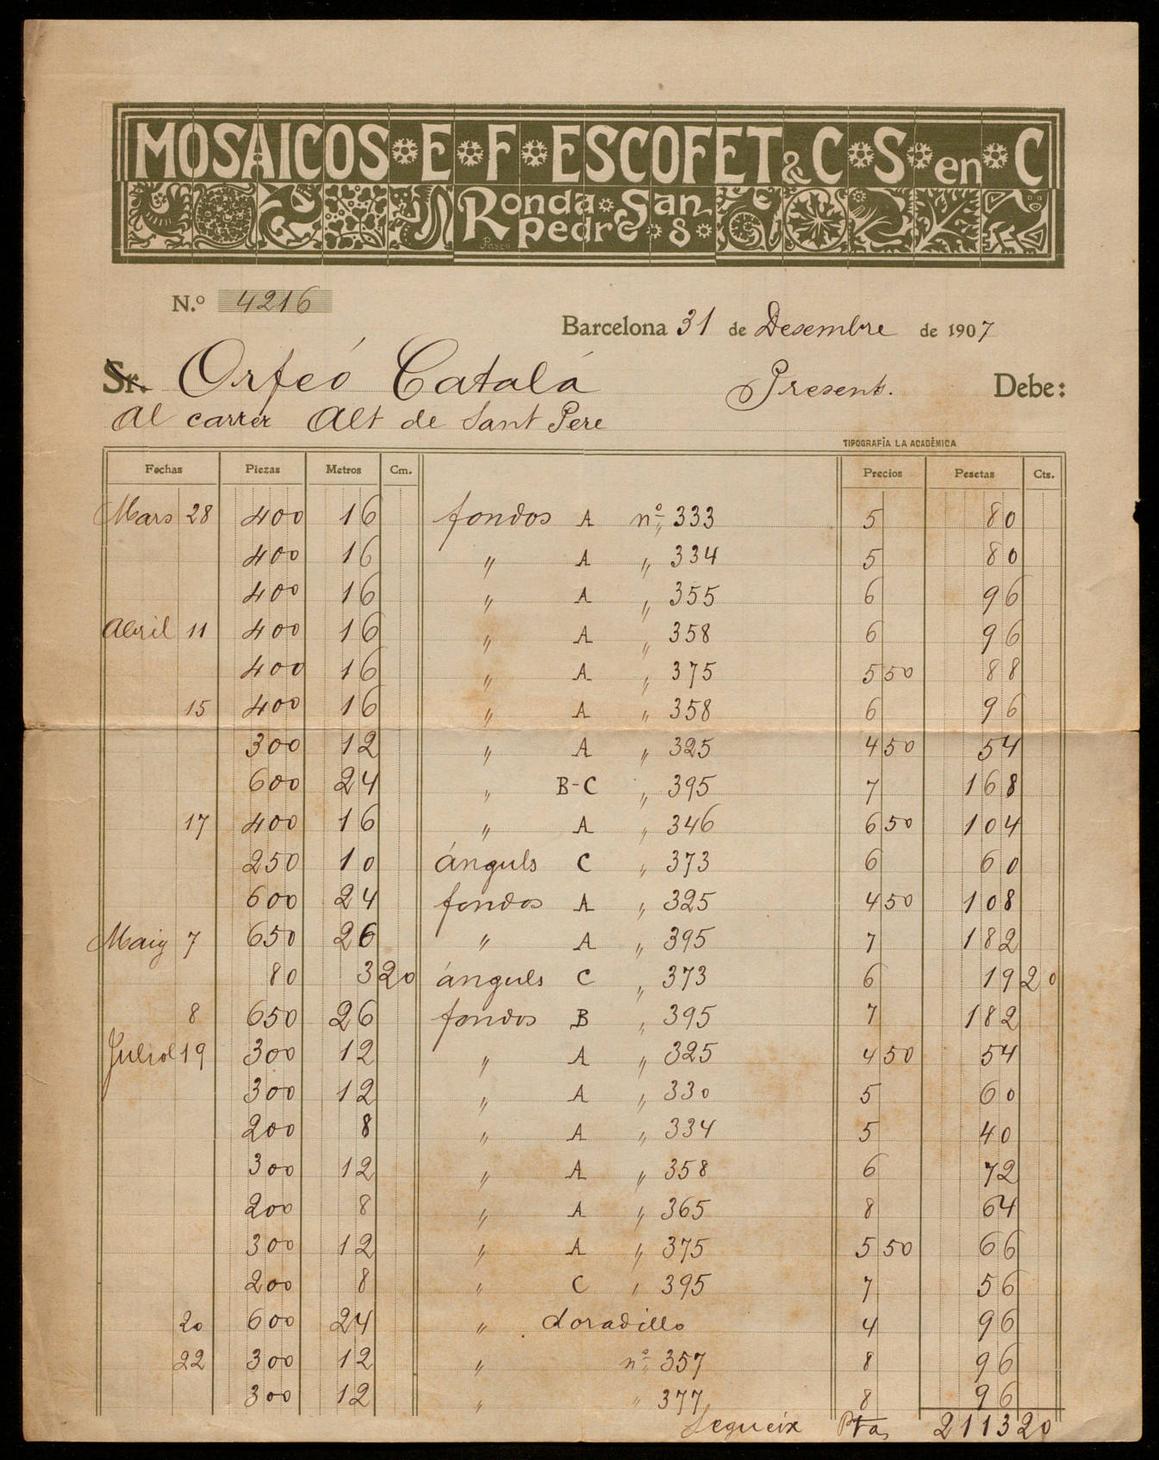 MOSAICOS E F ESCOFET & C S en C
Ronda San
pedro 8
N.º 4216
Barcelona 31 de Desembre de 1907
Sr. Orfeó Catalá Present. Debe:
Al carrer Alt de Sant Pere
TIPOGRAFÍA LA ACADÉMICA
Fechas Piezas Metros Cm. Precios Pesetas Cts.
Mars 28 400 16 fondos A nº 333 5 80
400 16 " A " 334 5 80
400 16 " A " 355 6 96
Abril 11 400 16 " A " 358 6 96
400 16 " A " 375 5 50 88
15 400 16 " A " 358 6 96
300 12 " A " 325 4 50 54
600 24 " B-C " 395 7 168
17 400 16 " A " 346 6 50 104
250 10 ánguls C " 373 6 60
600 24 fondos A " 325 4 50 108
Maig 7 650 26 " A " 395 7 182
80 3 20 ánguls C " 373 6 19 20
8 650 26 fondos B " 395 7 182
Juliol 19 300 12 " A " 325 4 50 54
300 12 " A " 330 5 60
200 8 " A " 334 5 40
300 12 " A " 358 6 72
200 8 " A " 365 8 64
300 12 " A " 375 5 50 66
200 8 " C " 395 7 56
20 600 24 " doradillo 4 96
22 300 12 " nº 357 8 96
300 12 " " 377 8 96
Segueix Ptas 2113 20